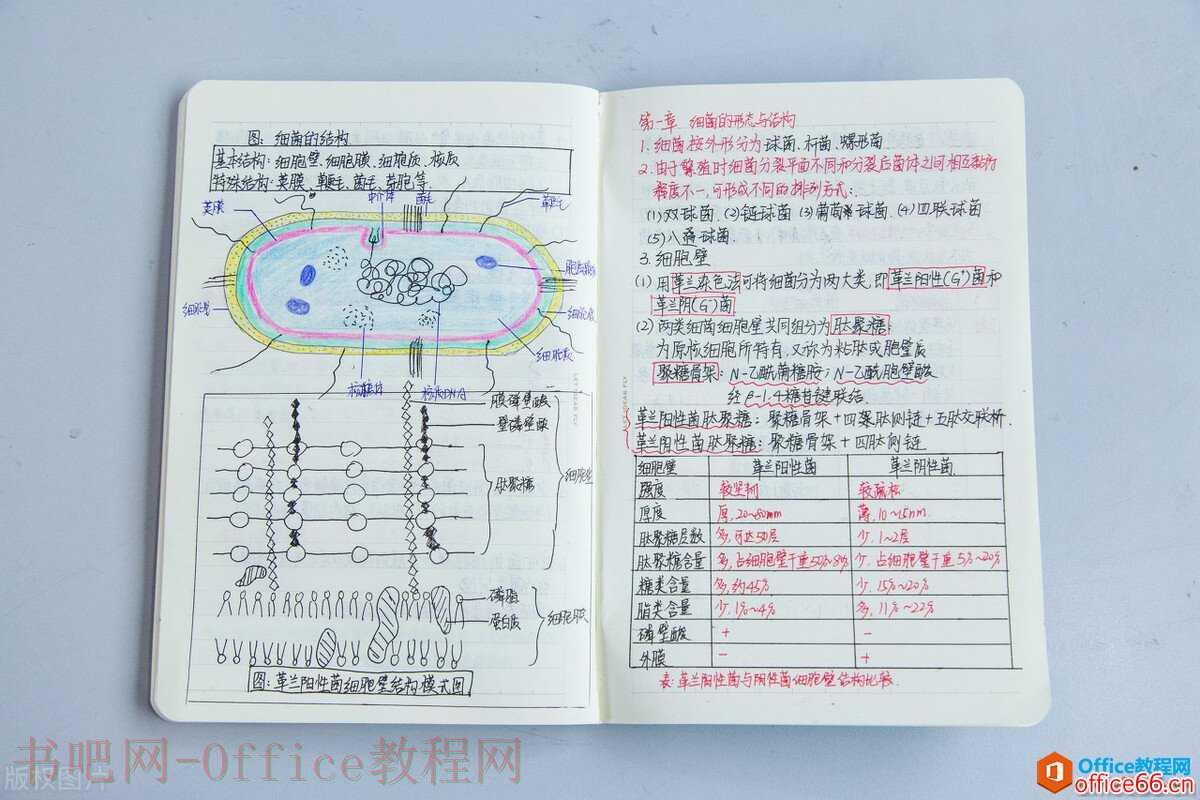 图：细菌的结构
基本结构：细胞壁、细胞膜、细胞质、核质
特殊结构：荚膜、鞭毛、菌毛、芽胞等.
荚膜
中介体
菌毛
鞭毛
细胞壁
细胞膜
细胞质
核糖体
核质DNA
膜磷壁酸
壁磷壁酸
肽聚糖
细胞壁
磷脂
蛋白质
细胞膜
图：革兰阳性菌细胞壁结构模式图
第一章 细菌的形态与结构
1. 细菌按外形分为球菌、杆菌、螺形菌
2. 由于繁殖时细菌分裂平面不同和分裂后菌体之间相互黏附
程度不一，可形成不同的排列方式：
(1) 双球菌 (2) 链球菌 (3) 葡萄球菌 (4) 四联球菌
(5) 八叠球菌.
3. 细胞壁
(1) 用革兰染色法可将细菌分为两大类，即革兰阳性(G⁺)菌和
革兰阴(G⁻)菌
(2) 两类细菌细胞壁共同组分为肽聚糖：
为原核细胞所特有，又称为粘肽或胞壁质
聚糖骨架：N-乙酰葡糖胺；N-乙酰胞壁酸
经β-1.4糖苷键联结.
革兰阳性菌肽聚糖：聚糖骨架+四聚肽侧链+五肽交联桥.
革兰阴性菌肽聚糖：聚糖骨架+四肽侧链
细胞壁 革兰阳性菌 革兰阴性菌
强度 较坚韧 较疏松
厚度 厚，20~80nm 薄，10~15nm
肽聚糖层数 多，可达50层 少，1~2层
肽聚糖含量 多，占细胞壁干重50%~80% 少，占细胞壁干重5%~20%
糖类含量 多，约45% 少，15%~20%
脂类含量 少，1%~4% 多，11%~22%
磷壁酸 + -
外膜 - +
表：革兰阳性菌与阴性菌细胞壁结构比较.
书吧网-Office教程网
版权图片
Office教程网
office66.cn